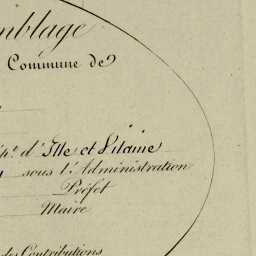 mblage
Commune de
d'Ille et Vilaine
sous l'Administration
Préfet
Maire
des Contributions